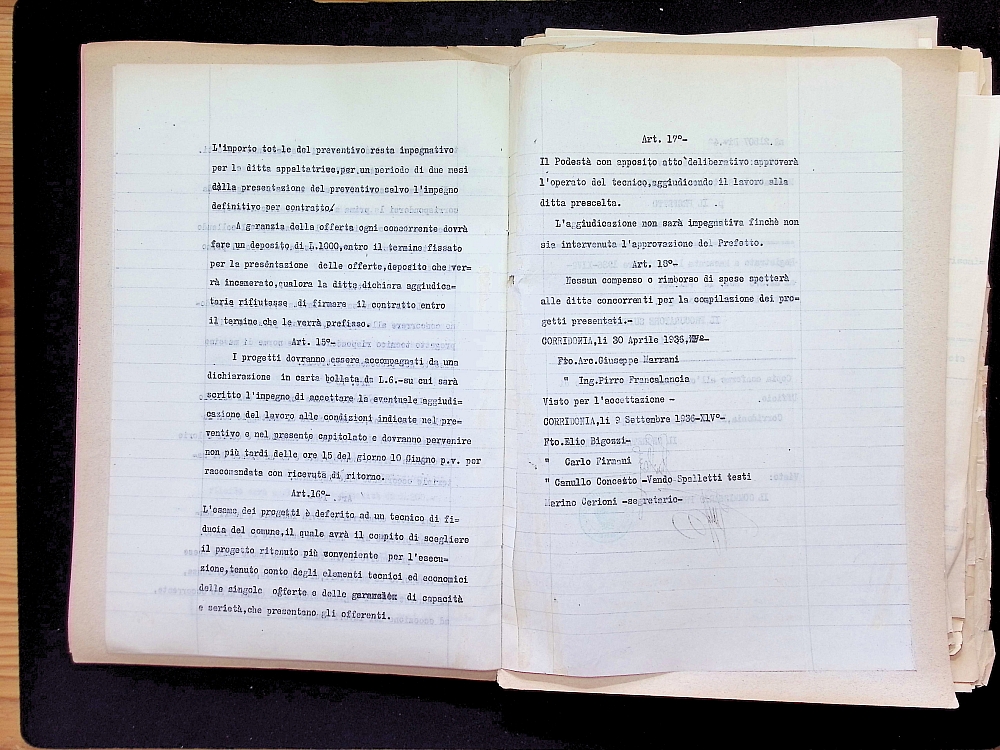 L'importo totale del preventivo resta impegnativo
per la ditta appaltatrice,per,un periodo di due mesi
dalla presentazione del preventivo salvo l'impegno
definitivo per contratto/
A garanzia della offerta ogni concorrente dovrà
fare un deposito di L.1000,entro il termine fissato
per la presentazione delle offerte,deposito che ver=
rà incamerato,qualora la ditta dichiara aggiudica=
taria rifiutasse di firmare il contratto entro
il termine che le verrà prefisso.
Art. 15°-
I progetti dovranno essere accompagnati da una
dichiarazione in carta bollata da L.6.-su cui sarà
scritto l'impegno di accettare la eventuale aggiudi=
cazione del lavoro alle condizioni indicate nel pre=
ventivo e nel presente capitolato e dovranno pervenire
non più tardi delle ore 15 del giorno 10 Giugno p.v. per
raccomandata con ricevuta di ritorno.
Art.16°-
L'esame dei progetti è deferito ad un tecnico di fi=
ducia del comune,il quale avrà il compito di scegliere
il progetto ritenuto più conveniente per l'esecu=
zione,tenuto conto degli elementi tecnici ed economici
delle singole offerte e delle garanzie di capacità
e serietà,che presentano gli offerenti.
Art. 17°-
Il Podestà con apposito atto deliberativo approverà
l'operato del tecnico,aggiudicando il lavoro alla
ditta prescelta.
L'aggiudicazione non sarà impegnativa finchè non
sia intervenuta l'approvazione del Prefetto.
Art. 18°-
Nessun compenso o rimborso di spese spetterà
alle ditte concorrenti per la compilazione dei pro=
getti presentati.-
CORRIDONIA,li 30 Aprile 1936,
Fto.Arc.Giuseppe Marrani
" Ing.Pirro Francalancia
Visto per l'accettazione -
CORRIDONIA,li 9 Settembre 1936-XIV°-
Fto.Elio Bigozzi-
" Carlo Firmani
" Canullo Concetto -Vando Spalletti testi
Marino Cerioni -segretario-